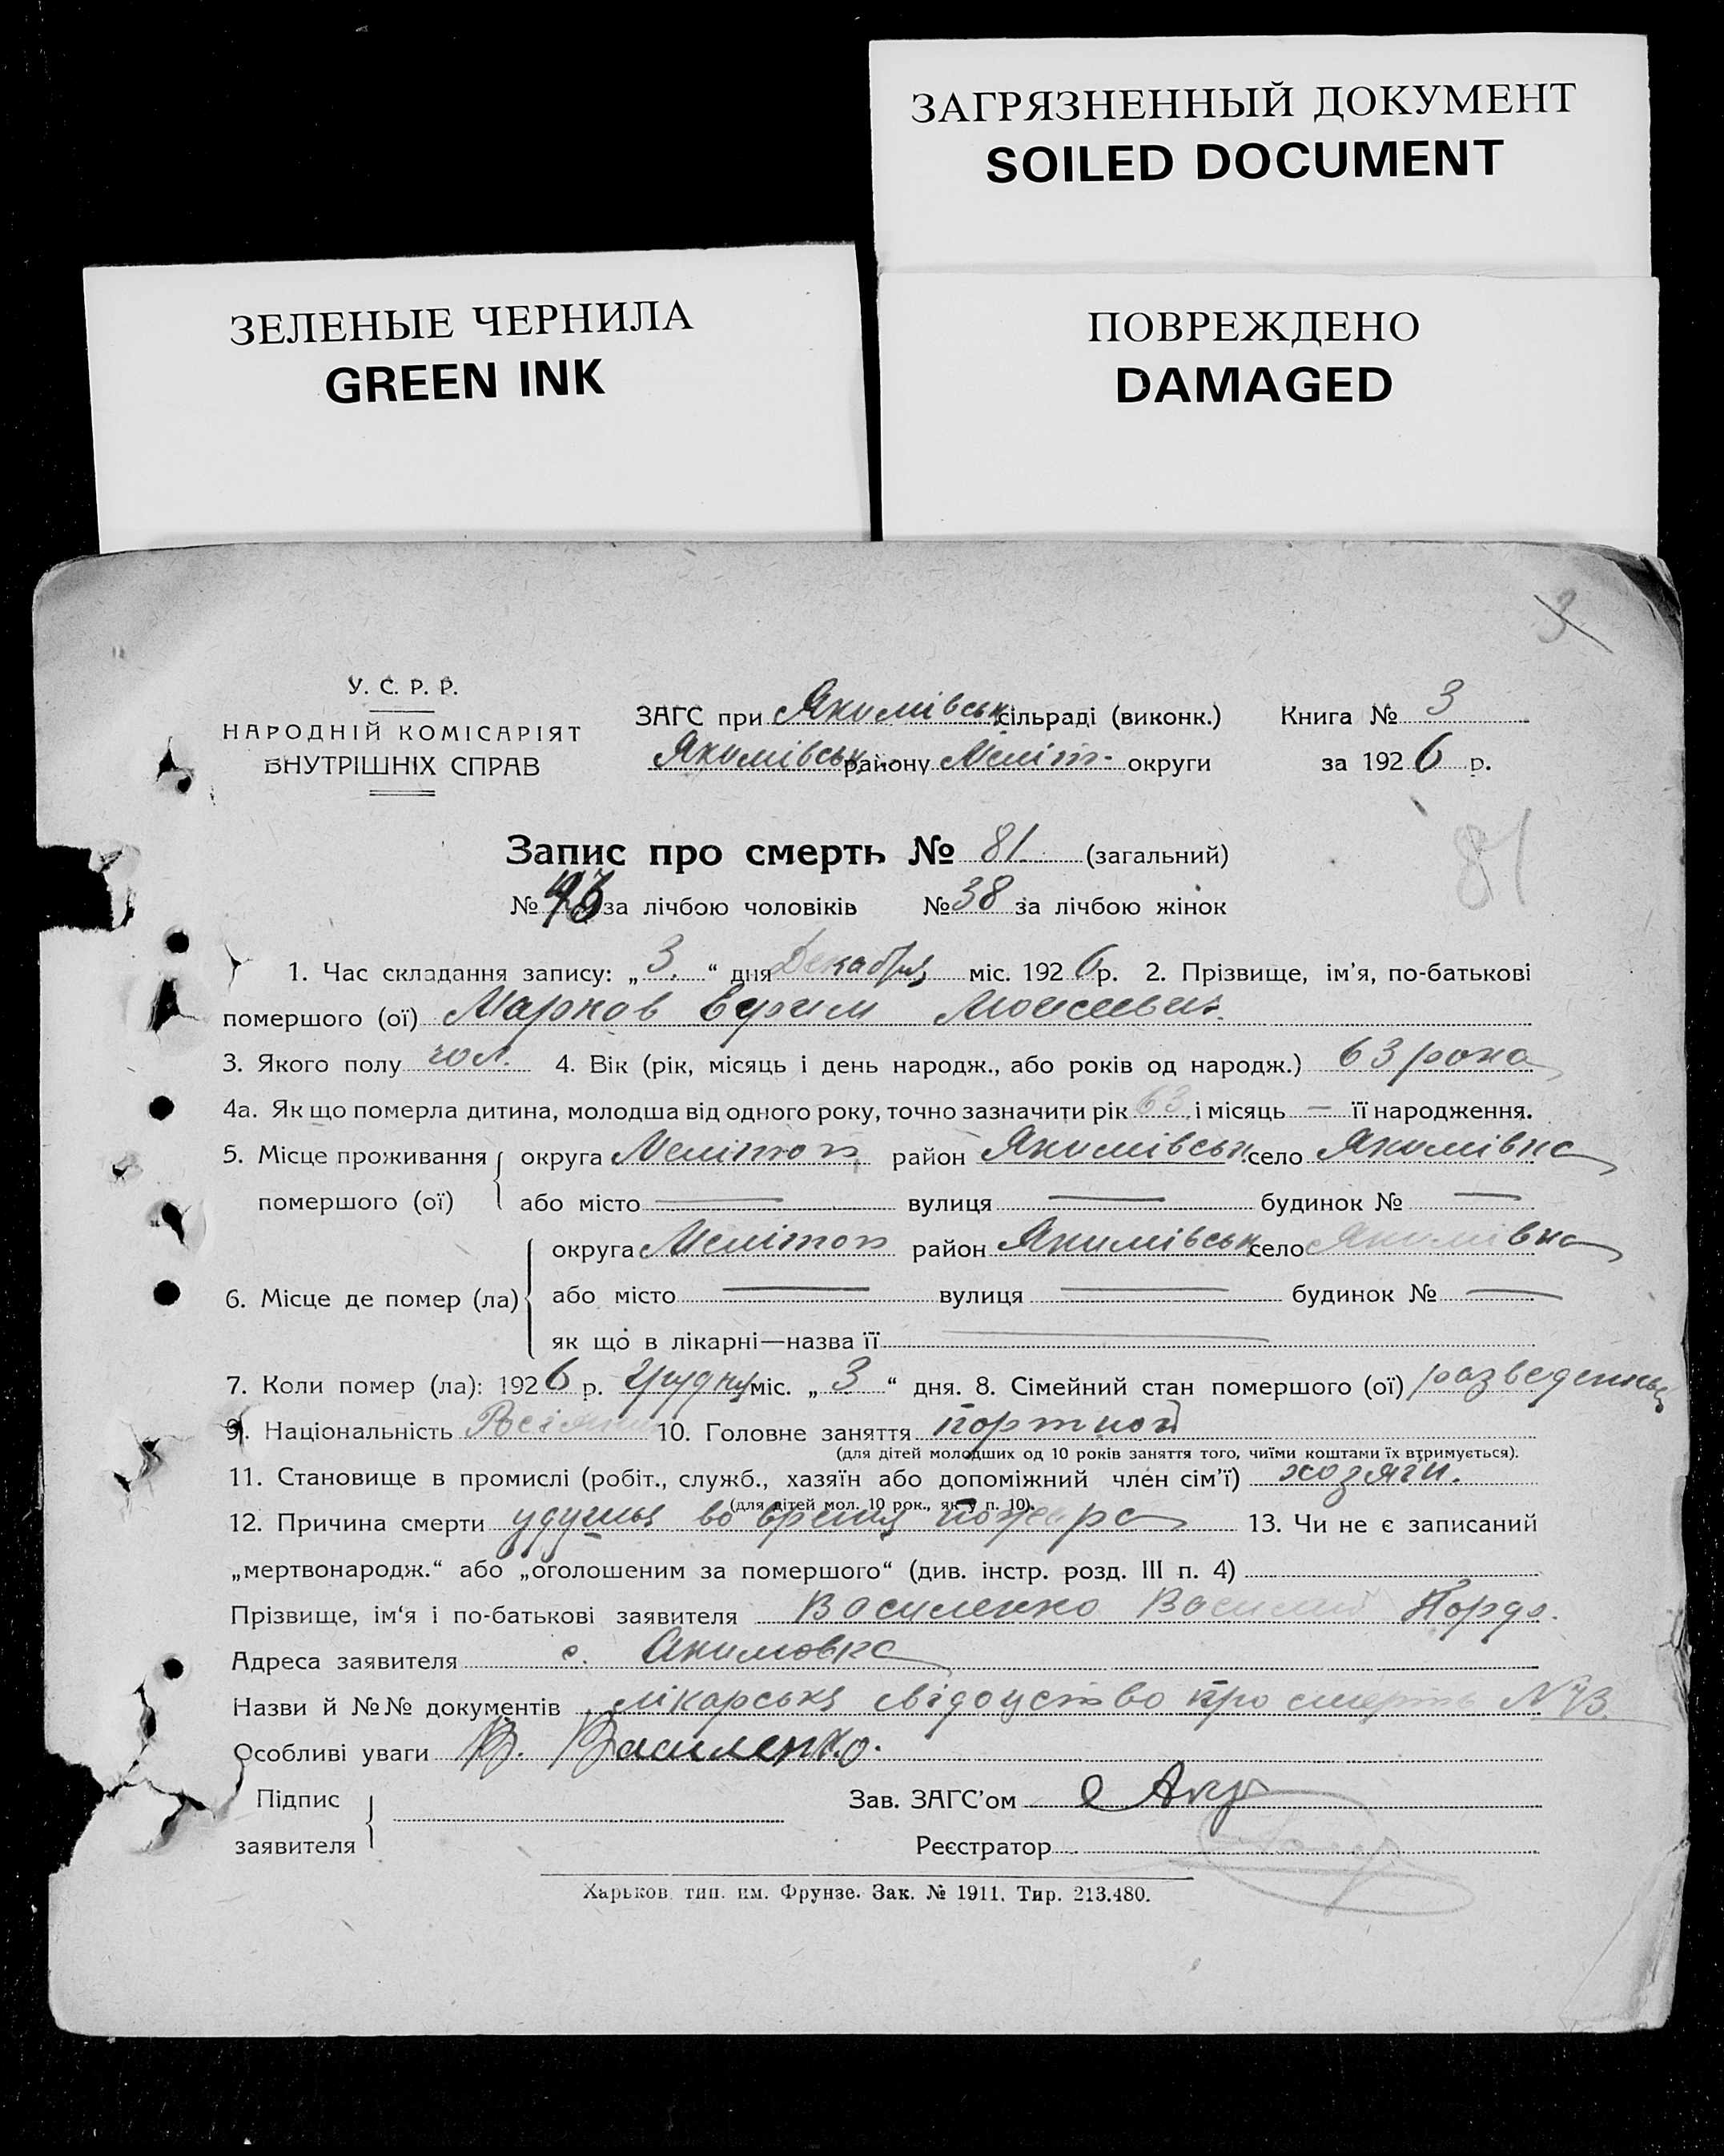 ЗАГРЯЗНЕННЫЙ ДОКУМЕНТ
SOILED DOCUMENT
ЗЕЛЕНЫЕ ЧЕРНИЛА
GREEN INK
ПОВРЕЖДЕНО
DAMAGED
3
У. С. Р. Р.
НАРОДНІЙ КОМІСАРІЯТ
ВНУТРІШНІХ СПРАВ
ЗАГС при Якимівськ сільраді (виконк.) Книга № 3
Якимівськ району Меліт. округи за 1926 р.
Запис про смерть № 81 (загальний)
81
№ 43 за лічбою чоловіків № 38 за лічбою жінок
1. Час складання запису: „3.“ дня Декабря міс. 1926 р. 2. Прізвище, ім'я, по-батькові
помершого (ої) Марков Ефим Моисеевич
3. Якого полу чол. 4. Вік (рік, місяць і день народж., або років од народж.) 63 рока
4а. Як що померла дитина, молодша від одного року, точно зазначити рік 63, і місяць — її народження.
5. Місце проживання помершого (ої) округа Мелітоп район Якимівськ. село Якимівка
або місто — вулиця — будинок № —
6. Місце де помер (ла) округа Мелітоп район Якимівськ село Якимівка
або місто — вулиця — будинок № —
як що в лікарні—назва її —
7. Коли помер (ла): 1926 р. Грудня міс. „3“ дня. 8. Сімейний стан помершого (ої) разведенный
9. Національність 10. Головне заняття портной
(для дітей молодших од 10 років заняття того, чиїми коштами їх втримується).
11. Становище в промислі (робіт., служб., хазяїн або допоміжний член сім'ї) хозяїн.
(для дітей мол. 10 рок., як у п. 10).
12. Причина смерти удушья во время пожара 13. Чи не є записаний
„мертвонародж.“ або „оголошеним за помершого“ (див. інстр. розд. III п. 4)
Прізвище, ім'я і по-батькові заявителя Василенко Василий
Адреса заявителя с. Акимовка
Назви й №№ документів лікарська свідоцтво про смерть №
Особливі уваги В. Василенко.
Підпис заявителя Зав. ЗАГС'ом
Реєстратор
Харьков. тип. им. Фрунзе. Зак. № 1911. Тир. 213.480.